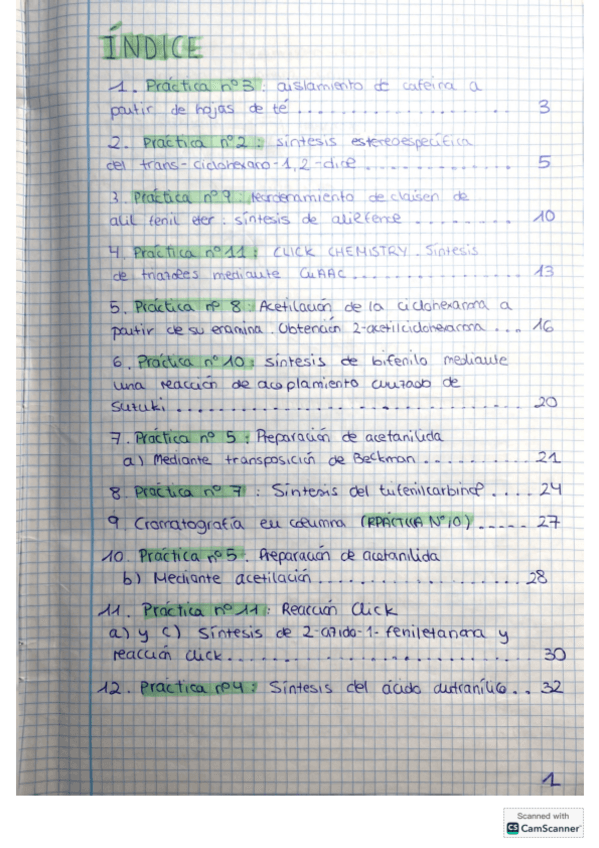 ÍNDICE
1. Práctica nº3: aislamiento de cafeína a
partir de hojas de té ........................ 3
2. Práctica nº2: síntesis estereoespecífica
del trans-ciclohexano-1,2-diol ................ 5
3. Práctica nº9: reordenamiento de claisen de
alil fenil eter: síntesis de alilfenol ........ 10
4. Práctica nº11: CLICK CHEMISTRY. Síntesis
de triazoles mediante CuAAC .................. 13
5. Práctica nº 8: Acetilación de la ciclohexanona a
partir de su enamina. Obtención 2-acetilciclohexanona ... 16
6. Práctica nº10: síntesis de bifenilo mediante
una reacción de acoplamiento cruzado de
Suzuki .................................... 20
7. Práctica nº 5: Preparación de acetanilida
a) Mediante transposición de Beckman .......... 21
8. Práctica nº 7: Síntesis del trifenilcarbinol .... 24
9 Cromatografía en columna (RPÁCTICA Nº10) ..... 27
10. Práctica nº5. Preparación de acetanilida
b) Mediante acetilación .................... 28
11. Práctica nº11: Reacción Click
a) y c) Síntesis de 2-azido-1-feniletanona y
reacción click ............................ 30
12. Práctica nº4: Síntesis del ácido antranílico .. 32
1
Scanned with
CS CamScanner